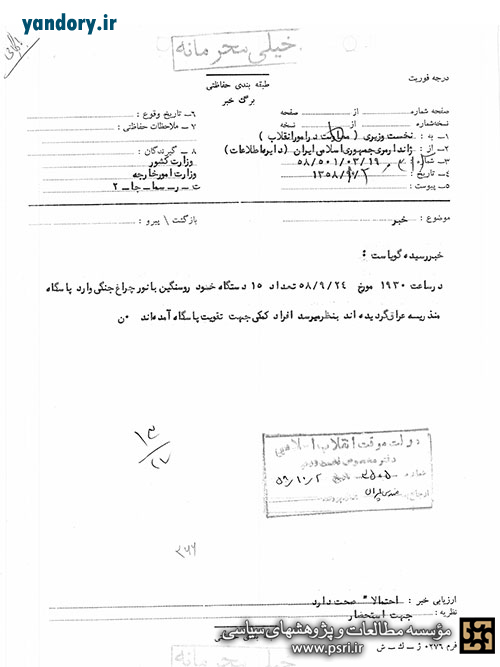 yandory.ir
خیلی محرمانه
طبقه بندی حفاظتی
برگ خبر
درجه فوریت
صفحه شماره از صفحه
نسخه شماره از نسخه
۱ـ به : نخست وزیری ( در امور انقلاب )
۲ـ از : ژاندارمری جمهوری اسلامی ایران (دایره اطلاعات)
۳ـ شماره ۵۸/۵۰۱/۰۳/۱۹
۴ـ تاریخ : ۱۳۵۸/۹/
۵ـ پیوست :
۶ـ تاریخ وقوع :
۷ـ ملاحظات حفاظتی :
۸ـ گیرندگان :
وزارت کشور
وزارت امور خارجه
ت ـ ر ـ سماجا ـ ۲
موضوع : خبر
بازگشت \ پیرو :
خبر رسیده گویاست :
در ساعت ۱۹۳۰ مورخ ۵۸/۹/۲۴ تعداد ۱۵ دستگاه خودرو سنگین با نور چراغ جنگی وارد پاسگاه
منذریه عراق گردیده اند بنظر میرسد افراد کمکی جهت تقویت پاسگاه آمده اند ن
۱۳/۲۷
۲۶۶
دولت موقت انقلاب اسلامی
دفتر مخصوص نخست وزیر
شماره
تاریخ ۵۹/۱۰/۲
ارزیابی خبر : احتمالا" صحت دارد
نظریه : جهت استحضار
مؤسسه مطالعات و پژوهشهای سیاسی
www.psri.ir
فرم ۰۲۷۶ ژ ـ ک ـ ش